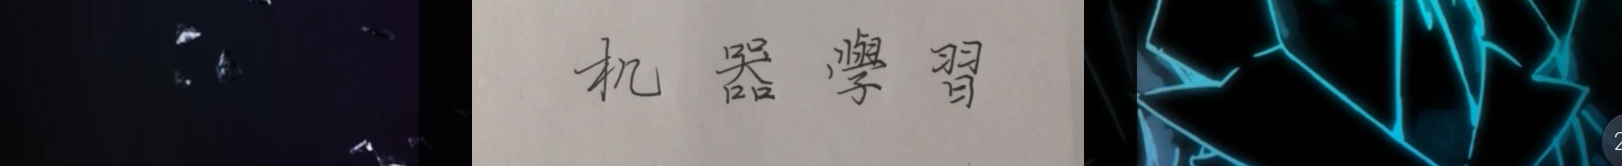 机器學習
2